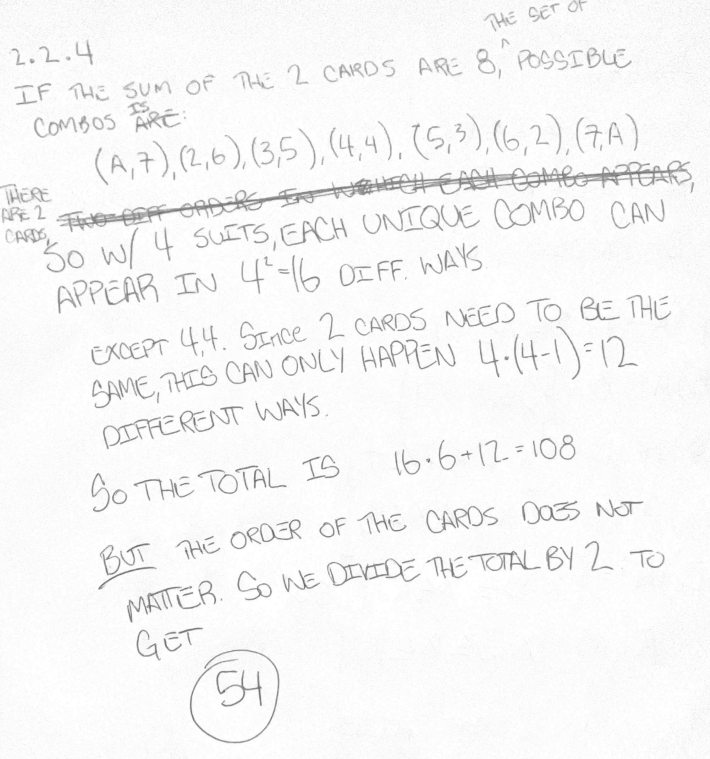 2.2.4
THE SET OF
IF THE SUM OF THE 2 CARDS ARE 8, ^ POSSIBLE
COMBOS ARE: IS
(A,7),(2,6),(3,5),(4,4),(5,3),(6,2),(7,A)
THERE ARE 2 CARDS,
TWO DIFF ORDERS IN WHICH EACH COMBO APPEARS,
SO W/ 4 SUITS, EACH UNIQUE COMBO CAN
APPEAR IN 4²=16 DIFF. WAYS
EXCEPT 4,4. SINCE 2 CARDS NEED TO BE THE
SAME, THIS CAN ONLY HAPPEN 4·(4-1)=12
DIFFERENT WAYS.
SO THE TOTAL IS 16·6+12=108
BUT THE ORDER OF THE CARDS DOES NOT
MATTER. SO WE DIVIDE THE TOTAL BY 2 TO
GET
54